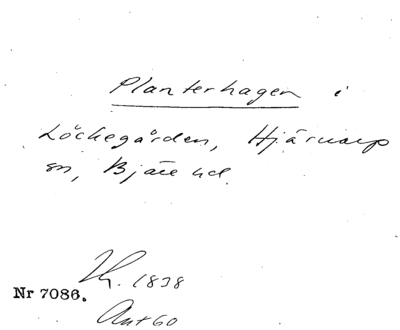 Planterhagen i
Löckegården, Hjärnarp
sn, Bjäre hd.
1838
Nr 7086.
Ant 60